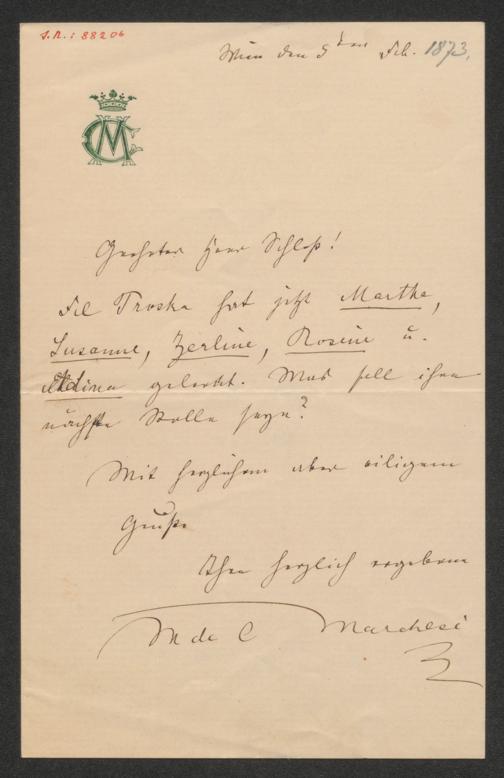 I.N.: 88206
Wien den 5ten Feb. 1873.
MC
Geehrter Herr Schloß!
Frl Proska hat jetzt Martha,
Susanne, Zerline, Rosine u.
Adina gelernt. Was soll ihre
nächste Rolle seyn?
Mit herzlichem aber eiligem
Gruße
Ihre herzlich ergebene
M de C Marchesi